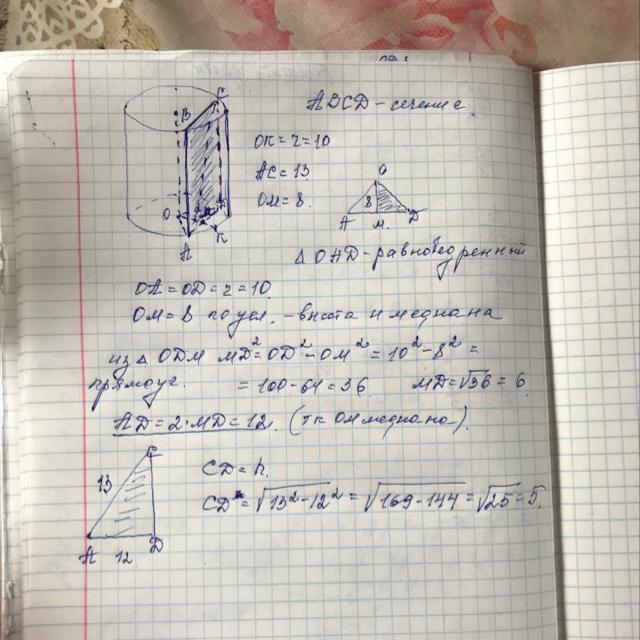 ABCD - сечение.
B C
OK = r = 10
AC = 13
OM = 8.
O
8
A M. D
O
A K
△ OAD - равнобедренный
OA = OD = r = 10.
OM = 8 по усл. - высота и медиана
из △ ODM MD² = OD² - OM² = 10² - 8² =
прямоуг. = 100 - 64 = 36. MD = √36 = 6.
AD = 2·MD = 12. (тк OM медиана).
C
13
CD = h.
CD = √13² - 12² = √169 - 144 = √25 = 5.
A 12 D